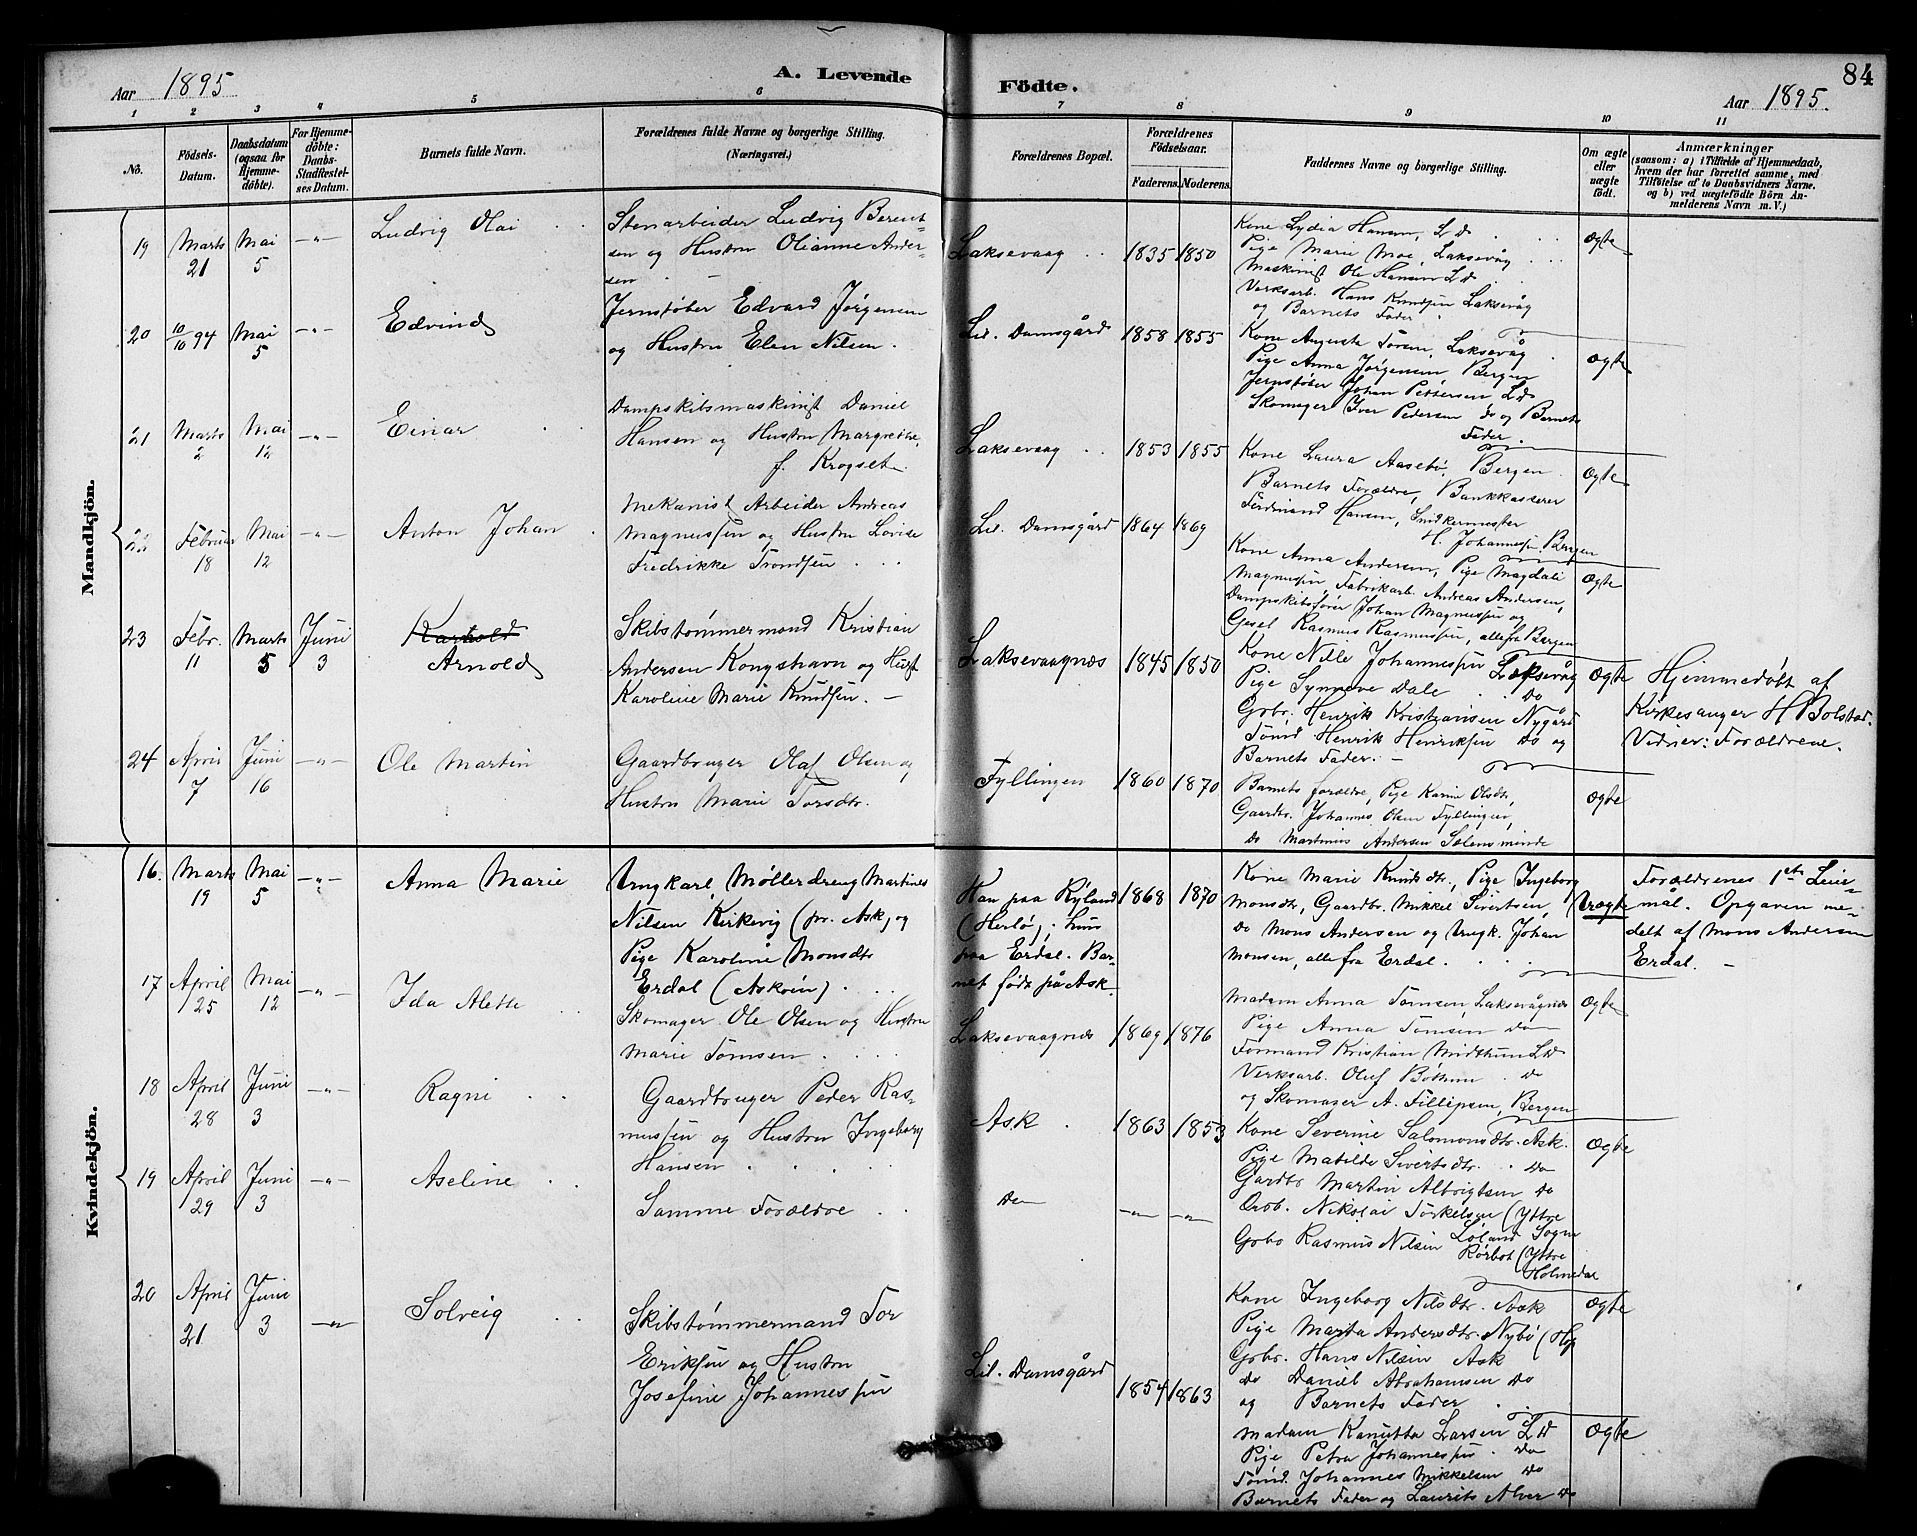 Aar 1895
A. Levende Födte.
84
Aar 1895.
1 2 3 4 5 6 7 8 9 10 11
No.
Födsels-
Datum.
Daabsdatum
(ogsaa for
Hjemme-
döbte).
For Hjemme-
döbte:
Daabs-
Stadfæstel-
ses Datum.
Barnets fulde Navn.
Forældrenes fulde Navne og borgerlige Stilling.
(Næringsvei.)
Forældrenes Bopæl.
Forældrenes
Födselsaar.
Faderens. Moderens.
Faddernes Navne og borgerlige Stilling.
Om ægte
eller
uægte
födt.
Anmærkninger
(saasom: a) i Tilfælde af Hjemmedaab,
hvem der har forrettet samme, med
Tilföielse af to Daabsvidners Navne.
og b) ved uægtefödte Börn An-
melderens Navn m. V.)
Mandkjön.
19
Marts
21
Mai
5
-„-
Ludvig Olai
Stenarbeider Ludvig Berent-
sen og Hustru Olianne Ander-
sen
Laksevaag
1835 1850
Kone Lydia Hansen, L D
Pige Marie Moe, Laksevåg
Maskinist Ole Hansen L D
Verksarb. Hans Knudsen Laksevåg
og Barnets Fader
Ægte
20
10/10 94
Mai
5
-„-
Edvind
Jernstøber Edvard Jørgensen
og Hustru Elen Nilsen.
Lil. Damsgård
1858 1855
Kone Augusta Toresen, Laksevåg
Pige Anna Jørgensen Bergen
Jernstøber Johan Pettersen L D
Skomager Iver Pedersen do og Barnets
Fader.
Ægte
21
Marts
2
Mai
12
-„-
Einar
Dampskibsmaskinist Daniel
Hansen og Hustru Margrethe
f. Krogset
Laksevaag
1853 1855
Kone Laura Aasebö, Bergen
Barnets Forældre, Bankkasserer
Ferdinand Hansen, Snidkermester
H. Johannessen, Bergen
Ægte
22
Februar
18
Mai
12
-„-
Anton Johan
Mekanisk Arbeider Andreas
Magnussen og Hustru Lovise
Fredrikke Trondsen
Lil. Damsgård
1864 1869
Kone Anna Andersen, Pige Magdali
Magnussen, Fabrikarb. Andreas Andersen,
Dampskibsfører Johan Magnussen og
Gesel Rasmus Rasmussen, alle fra Bergen
Ægte
23
Febr.
11
Marts
5
Juni
3
Karhold
Arnold
Skibstømmermand Kristian
Andersen Kongshavn og Hust
Karoline Marie Knudsen. -
Laksevaagnæs
1845 1850
Kone Nille Johannessen Laksevåg
Pige Synneve Dale Do
Grbr. Henrik Kristiansen Nygård
Tømd Henrik Henriksen Do og
Barnets Fader. -
Ægte
Hjemmedøbt af
Kirkesanger H Bolstad.
Vidner: Forældrene.
24
April
7
Juni
16
-„-
Ole Martin
Gaardbruger Olaf Olsen og
Hustru Marie Torsdtr.
Fyllingen
1860 1870
Barnets forældre, Pige Karine Olsdtr,
Gaardbr. Johannes Olsen Fyllingen,
Do Martinus Andersen Sølensminde
Ægte
Kvindekjön.
16.
Marts
19
Mai
5
-„-
Anna Marie
Ungkarl Møllerdreng Martines
Nilsen Kirkevig (pr. Ask) og
Pige Karoline Monsdtr
Erdal (Askøen)
Han paa Ryland
(Herlø); hun
paa Erdal. Bar-
net født på Ask.
1868 1870
Kone Marie Knudsdtr., Pige Ingeborg
Monsdtr, Gaardbr. Mikkel Sivertsen,
Do Mons Andersen og Ungk. Johan
Monsen, alle fra Erdal.
Uægte
Forældrenes 1ste Leier-
mål. Opgaven me-
delt af Mons Andersen
Erdal. -
17
April
25
Mai
12
-„-
Ida Alette
Skomager Ole Olsen og Hustru
Marie Tomsen
Laksevaagnæs
1869 1876
Madam Anna Tomsen, Laksevågnæs
Pige Anna Tomsen Do
Formand Kristian Midthun L D
Verksarb. Oluf Bøthun Do
og Skomager A. Fillipsen, Bergen
Ægte
18
April
28
Juni
3
-„-
Ragni
Gaardbruger Peder Ras-
mussen og Hustru Ingeborg
Hansen
Ask
1863 1853
Kone Severine Salomonsdtr. Ask.
Pige Matilde Sivertsdtr. Do
Gardbr Martin Albrigtsen Do
Grbr. Nikolai Torkelsen (Yttre
Grbr Rasmus Nilsen Løland Sogn
Rørbot (Yttre
Holmedal
Ægte
19
April
29
Juni
3
-„-
Aseline
Samme Forældre
Do
-„- -„-
Kone Ingeborg Nilsdtr. Ask
Pige Marta Andersdtr. Nybø (Hop
Grbr. Hans Nilsen Ask
Do Daniel Abrahamsen Do
og Barnets Fader
Ægte
20
April
21
Juni
3
-„-
Solveig
Skibstømmermand Tor
Eriksen og Hustru
Josefine Johannessen
Lil. Damsgård
1854 1863
Madam Kanutta Larsen L D
Pige Petra Johannessen Do
Tømd. Johannes Mikkelsen Do
Barnets Fader og Laurits Alver Do
Ægte